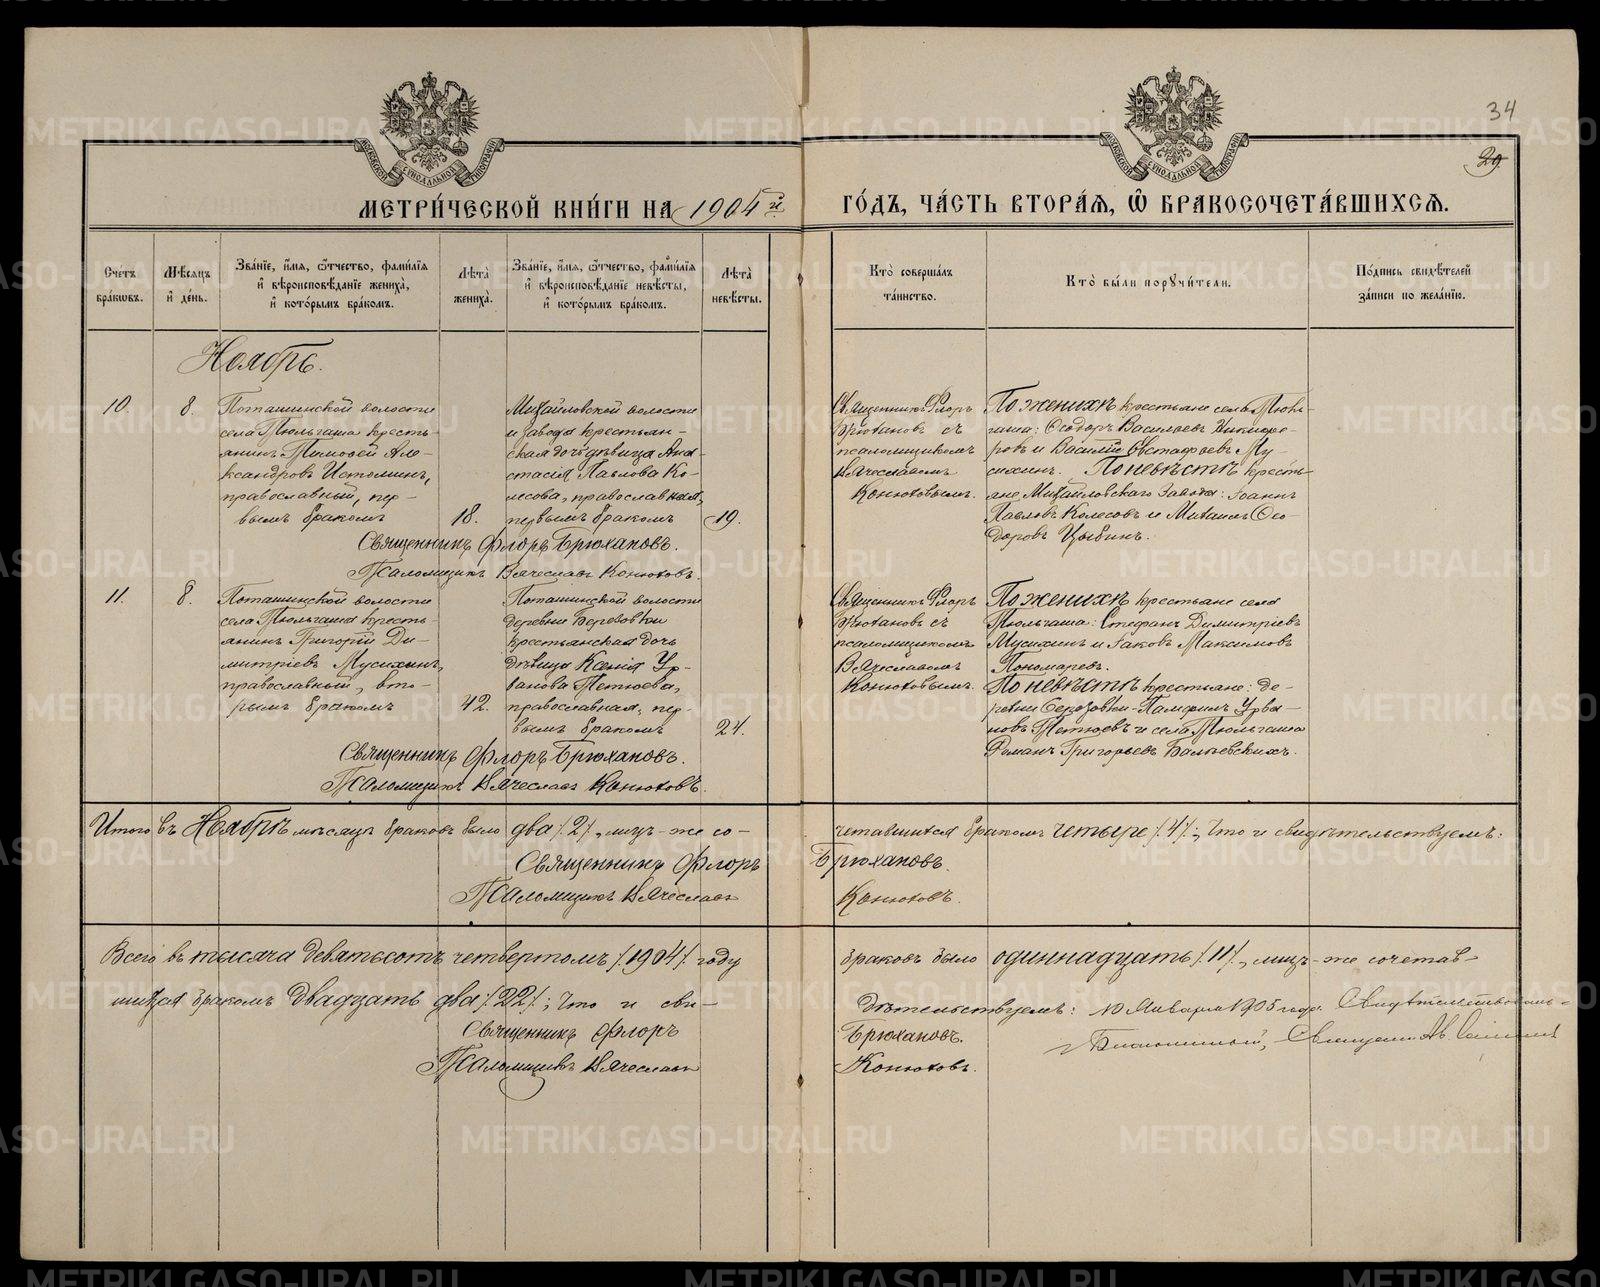 34
29
МЕТРИЧЕСКОЙ КНИГИ НА 1904й ГОДЪ, ЧАСТЬ ВТОРАЯ, Ѡ БРАКОСОЧЕТАВШИХСЯ.
Счетъ браковъ.
Мѣсяцъ и день.
Званіе, имя, отчество, фамилія
и вѣроисповѣданіе жениха,
и которымъ бракомъ.
Лѣта жениха.
Званіе, имя, отчество, фамилія
и вѣроисповѣданіе невѣсты,
и которымъ бракомъ.
Лѣта невѣсты.
Кто совершалъ
таинство.
Кто были поручители.
Подпись свидѣтелей
записи по желанію.
Ноябрь.
10.
8.
Поташинской волости
села Тюльгаша кресть-
янинъ Тимофей Але-
ксандровъ Истоминъ,
православный, пер-
вымъ бракомъ
18.
Михайловской волости
и завода крестьян-
ская дочь девица Ана-
стасія Павлова Ко-
лесова, православная,
первымъ бракомъ
19.
Священникъ Флоръ
Брюхановъ съ
псаломщикомъ
Вячеславомъ
Конюховымъ.
По женихѣ крестьяне села Тюль-
гаша: Ѳеодоръ Васильевъ Никифо-
ровъ и Василій Евстафіевъ Му-
сихинъ. По невѣстѣ кресть-
яне Михайловскаго Завода: Іоаннъ
Павловъ Колесовъ и Михаилъ Ѳео-
доровъ Цыбинъ.
Священникъ Флоръ Брюхановъ.
Псаломщикъ Вячеславъ Конюховъ.
11.
8.
Поташинской волости
села Тюльгаша кресть-
янинъ Григорій Ди-
митріевъ Мусихинъ,
православный, вто-
рымъ бракомъ
42.
Поташинской волости
деревни Березовки
крестьянская дочь
дѣвица Ксенія Ур-
ванова Петюева,
православная, пер-
вымъ бракомъ
24.
Священникъ Флоръ
Брюхановъ съ
псаломщикомъ
Вячеславомъ
Конюховымъ.
По женихѣ крестьяне села
Тюльгаша: Стефанъ Димитріевъ
Мусихинъ и Іаковъ Максимовъ
Пономаревъ.
По невѣстѣ крестьяне: де-
ревни Березовки Памфилъ Урва-
новъ Петюевъ и села Тюльгаша
Романъ Григорьевъ
Священникъ Флоръ Брюхановъ.
Псаломщикъ Вячеславъ Конюховъ.
Итого въ Ноябрѣ мѣсяцѣ браковъ было два /2/, лицъ-же со-
четавшихся бракомъ четыре /4/, что и свидѣтельствуемъ:
Священникъ Флоръ Брюхановъ.
Псаломщикъ Вячеславъ Конюховъ.
Всего въ тысяча девятьсотъ четвертомъ /1904/ году браковъ было одиннадцать /11/, лицъ-же сочетав-
шихся бракомъ двадцать два /22/; что и сви-
дѣтельствуемъ: 10 Января 1905 года. Свидѣтельствовалъ
Священникъ Флоръ Брюхановъ.
Благочинный, Священникъ
Псаломщикъ Вячеславъ Конюховъ.
METRIKI.GASO-URAL.RU